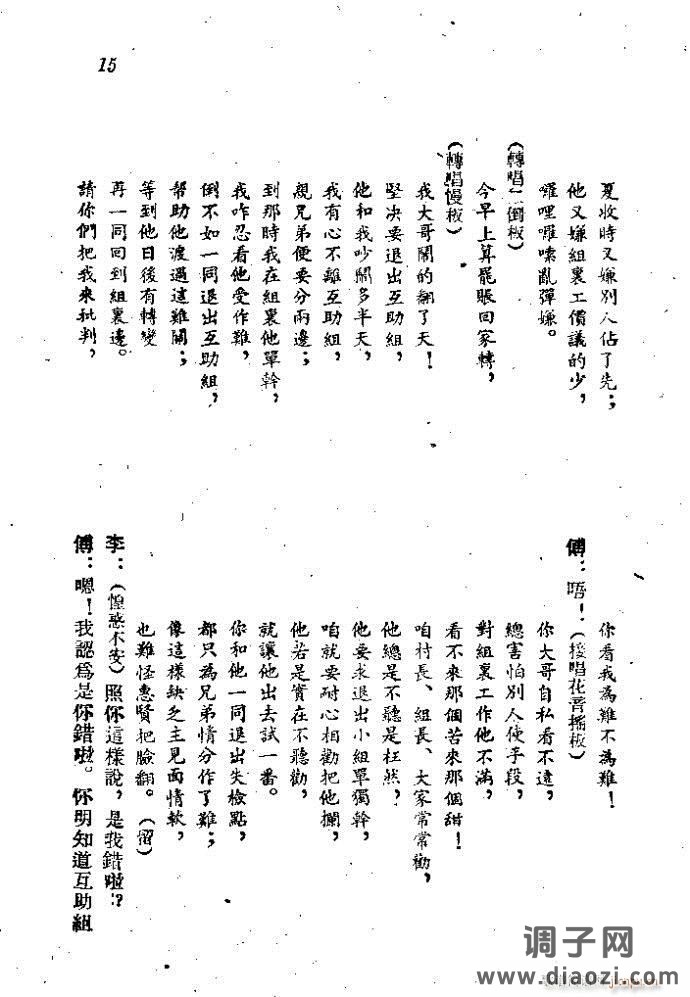 15
夏收時又嫌別人佔了先；
他又嫌組裏工價議的少，
囉哩囉嗦亂彈嫌。
（轉唱二倒板）
今早上算罷賬回家轉，
（轉唱慢板）
我大哥鬧的翻了天！
堅决要退出互助組，
他和我吵鬧多半天，
我有心不離互助組，
親兄弟便要分兩邊；
到那時我在組裏他單幹，
我咋忍看他受作難，
倒不如一同退出互助組，
帮助他渡過這難關；
等到他日後有轉變
再一同回到組裏邊。
請你們把我來批判，
你看我為難不為難！
傅：唔！（接唱花音搖板）
你大哥自私看不遠，
總害怕別人使手段，
對組裏工作他不滿，
看不來那個苦來那個甜！
咱村長、組長、大家常常勸，
他總是不聽是枉然，
他要求退出小組單獨幹，
咱就要耐心相勸把他攔，
他若是實在不聽勸，
就讓他出去試一番。
你和他一同退出失檢點，
都只為兄弟情分作了難；
像這樣缺乏主見面情軟，
也難怪惠賢把臉翻。（留）
李：（惶惑不安）照你這樣說，是我錯啦！？
傅：嗯！我認爲是你錯啦。你明知道互助組
调子网
www.diaozi.com